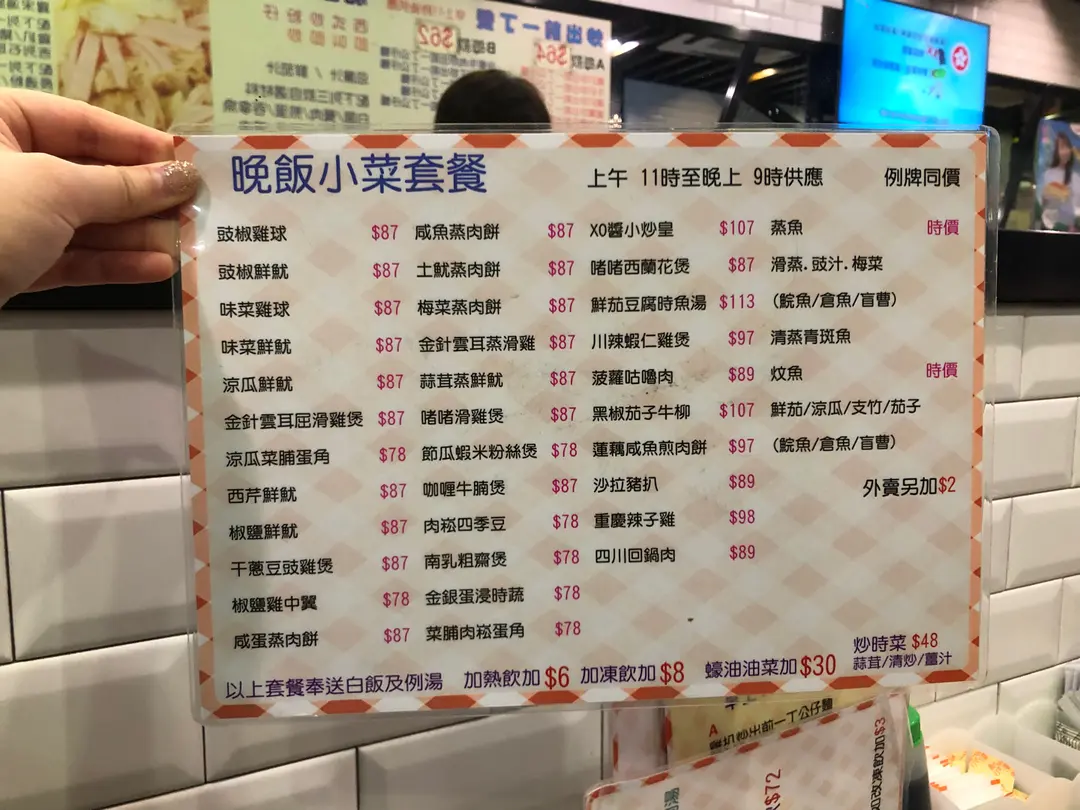 晚飯小菜套餐
上午 11時至晚上 9時供應
例牌同價
豉椒雞球 $87
豉椒鮮魷 $87
味菜雞球 $87
味菜鮮魷 $87
涼瓜鮮魷 $87
金針雲耳屈滑雞煲 $87
涼瓜菜脯蛋角 $78
西芹鮮魷 $87
椒鹽鮮魷 $87
干蔥豆豉雞煲 $87
椒鹽雞中翼 $78
咸蛋蒸肉餅 $87
咸魚蒸肉餅 $87
土魷蒸肉餅 $87
梅菜蒸肉餅 $87
金針雲耳蒸滑雞 $87
蒜茸蒸鮮魷 $87
啫啫滑雞煲 $87
節瓜蝦米粉絲煲 $78
咖喱牛腩煲 $87
肉崧四季豆 $78
南乳粗齋煲 $78
金銀蛋浸時蔬 $78
菜脯肉崧蛋角 $78
XO醬小炒皇 $107
啫啫西蘭花煲 $87
鮮茄豆腐時魚湯 $113
川辣蝦仁雞煲 $97
菠蘿咕嚕肉 $89
黑椒茄子牛柳 $107
蓮藕咸魚煎肉餅 $97
沙拉豬扒 $89
重慶辣子雞 $98
四川回鍋肉 $89
蒸魚 時價
滑蒸.豉汁.梅菜
(鯇魚/倉魚/盲曹)
清蒸青斑魚
炆魚 時價
鮮茄/涼瓜/支竹/茄子
(鯇魚/倉魚/盲曹)
外賣另加$2
炒時菜 $48
蒜茸/清炒/薑汁
以上套餐奉送白飯及例湯 加熱飲加$6 加凍飲加$8 蠔油油菜加$30
A
$72